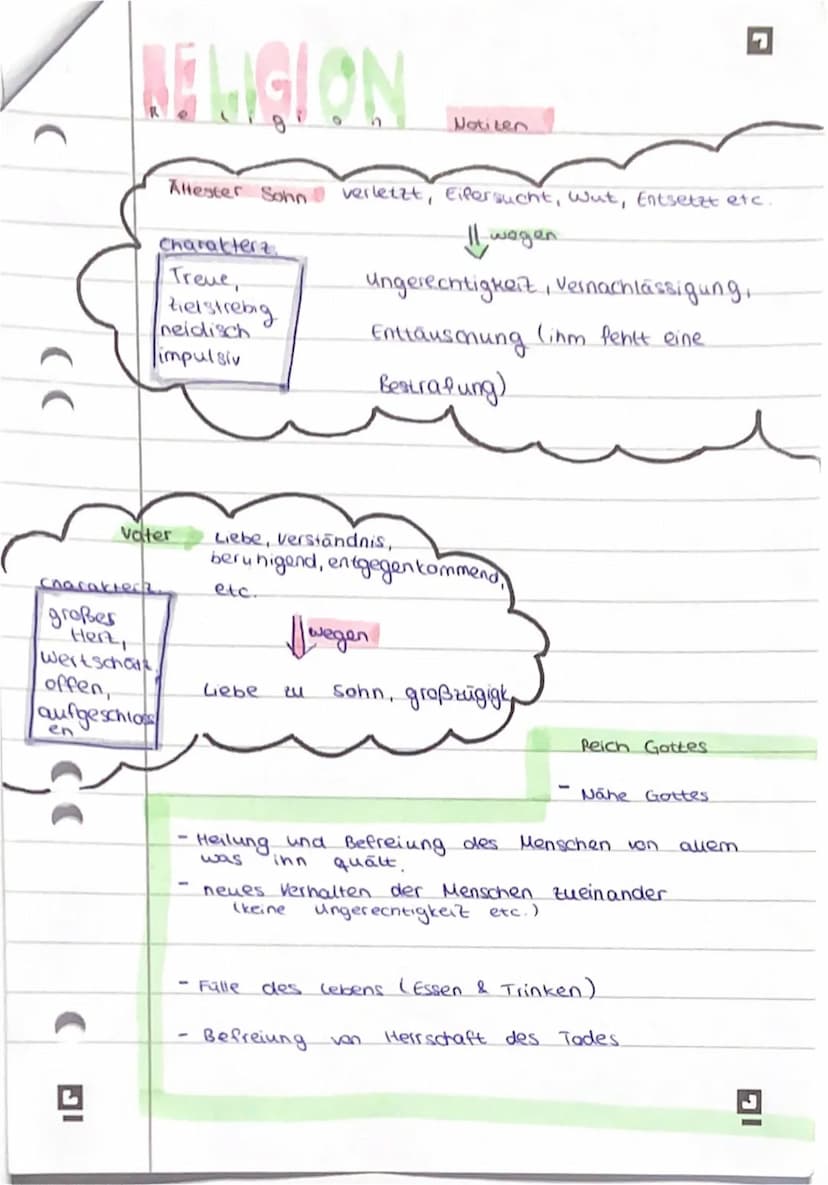 RELIGION
Religion
Notizen
Ältester Sohn verletzt, Eifersucht, Wut, Entsetzt etc.
wegen
Charakterz.
Treue,
zielstrebig
neidisch
impulsiv
Ungerechtigkeit, Vernachlässigung,
Enttäuschung (ihm fehlt eine
Bestrafung)
Vater Liebe, Verständnis,
beruhigend, entgegenkommend,
etc.
Charakterz.
großes
Herz,
Wertschätz,
offen,
aufgeschloss
en
wegen
Liebe zu Sohn, großzügigk.
Reich Gottes
- Nähe Gottes
- Heilung und Befreiung des Menschen von allem
was ihn quält.
- neues Verhalten der Menschen zueinander
(keine Ungerechtigkeit etc.)
- Fülle des Lebens (Essen & Trinken)
- Befreiung von Herrschaft des Todes